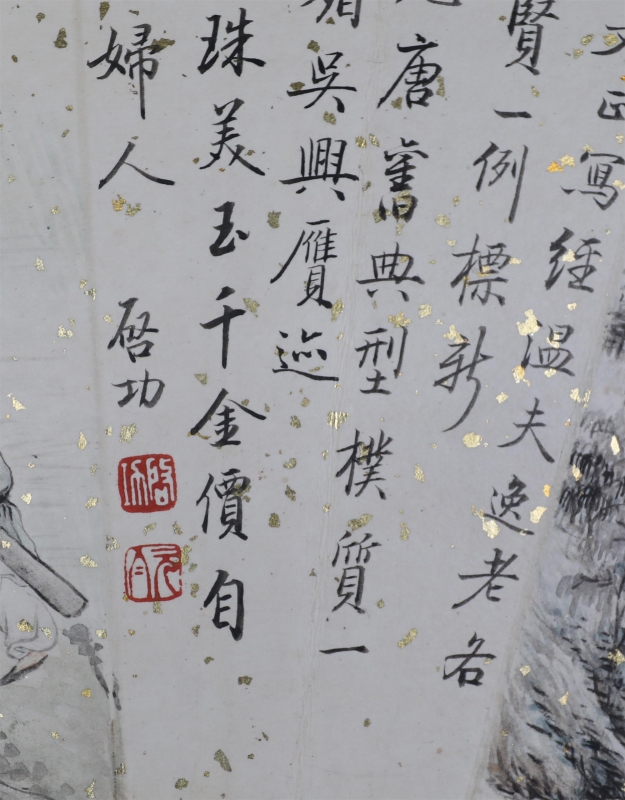 正寫經溫夫逸老各
賢一例標新
唐舊典型樸質一
吳興贗迹
珠美玉千金價自
婦人
啓功
啓功
元白